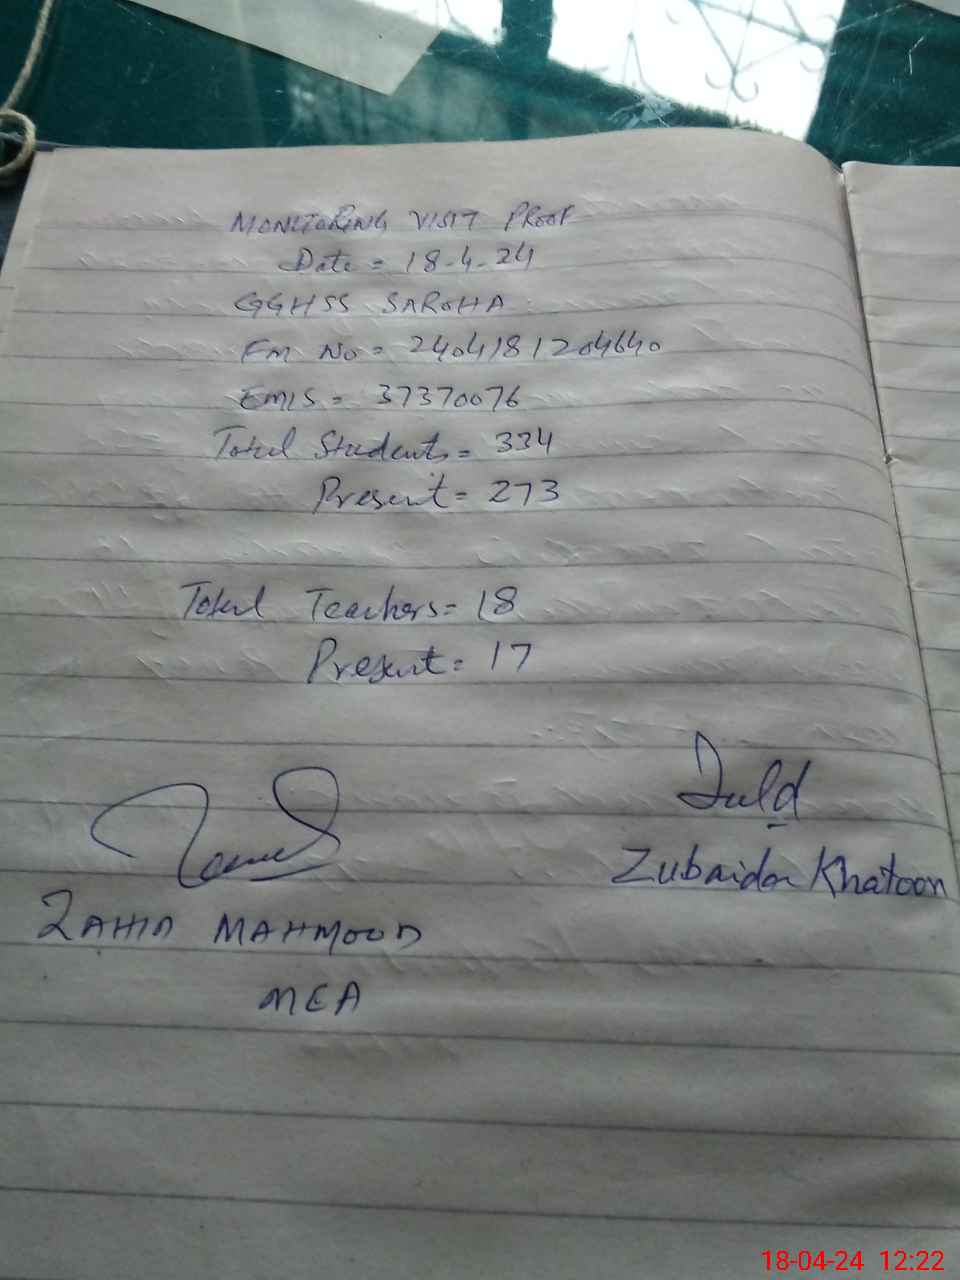 MONITORING VISIT PROOF
Date = 18-4-24
GGHSS SAROHA
FM No = 2404181204640
EMIS = 37370076
Total Students = 334
Present = 273
Total Teachers = 18
Present = 17
Zubaida Khatoon
ZAHID MAHMOOD
MEA
18-04-24 12:22